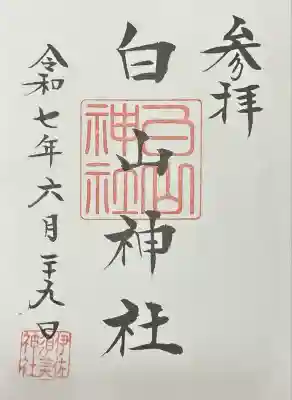 参拝
白山神社
白山神社
令和七年六月二十九日
伊佐須美神社